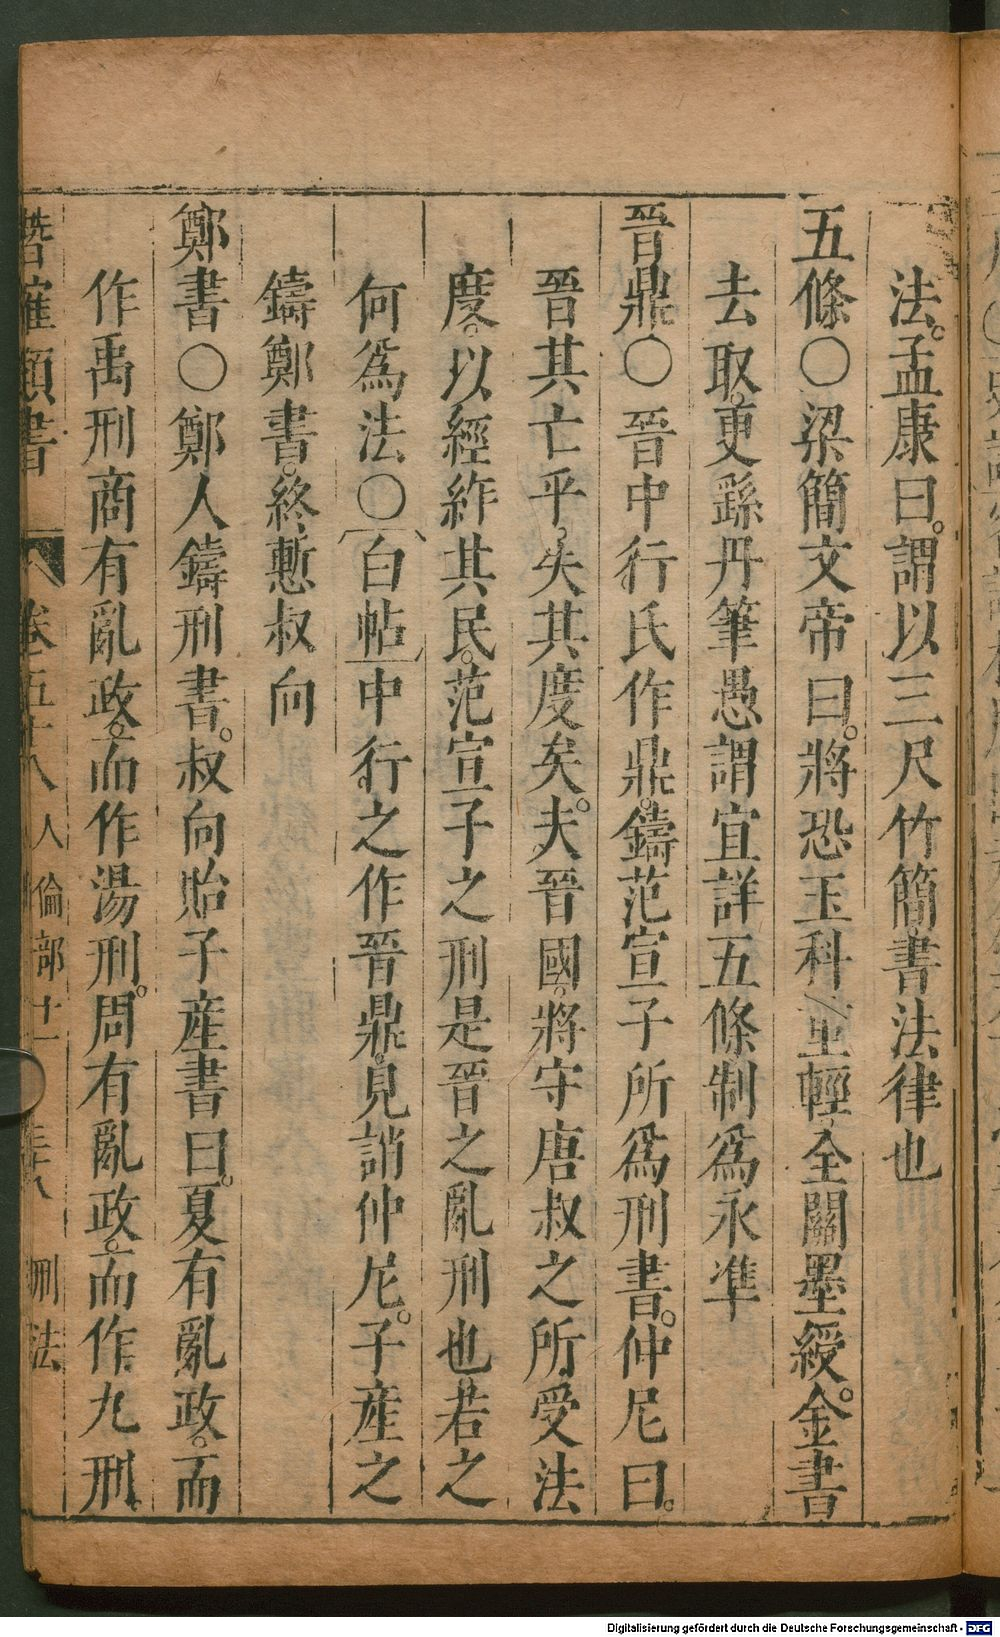 法。孟康曰。謂以三尺竹簡書法律也
五條〇梁簡文帝曰。將恐玉科重輕。全關墨綬。金書
去取。更繇丹筆愚謂宜詳五條制為永準
晉鼎〇晉中行氏作鼎。鑄范宣子所為刑書。仲尼曰。
晉其亡乎。失其度矣。夫晉國。將守唐叔之所受法
度。以經紨其民。范宣子之刑是晉之亂刑也。若之
何為法〇白帖中行之作晉鼎。見誚仲尼。子產之
鑄鄭書。終慙叔向
鄭書〇鄭人鑄刑書。叔向貽子產書曰。夏有亂政。而
作禹刑商有亂政。而作湯刑。周有亂政。而作九刑。
類書 卷五十八 人倫部十一 刑法
Digitalisierung gefördert durch die Deutsche Forschungsgemeinschaft - DFG